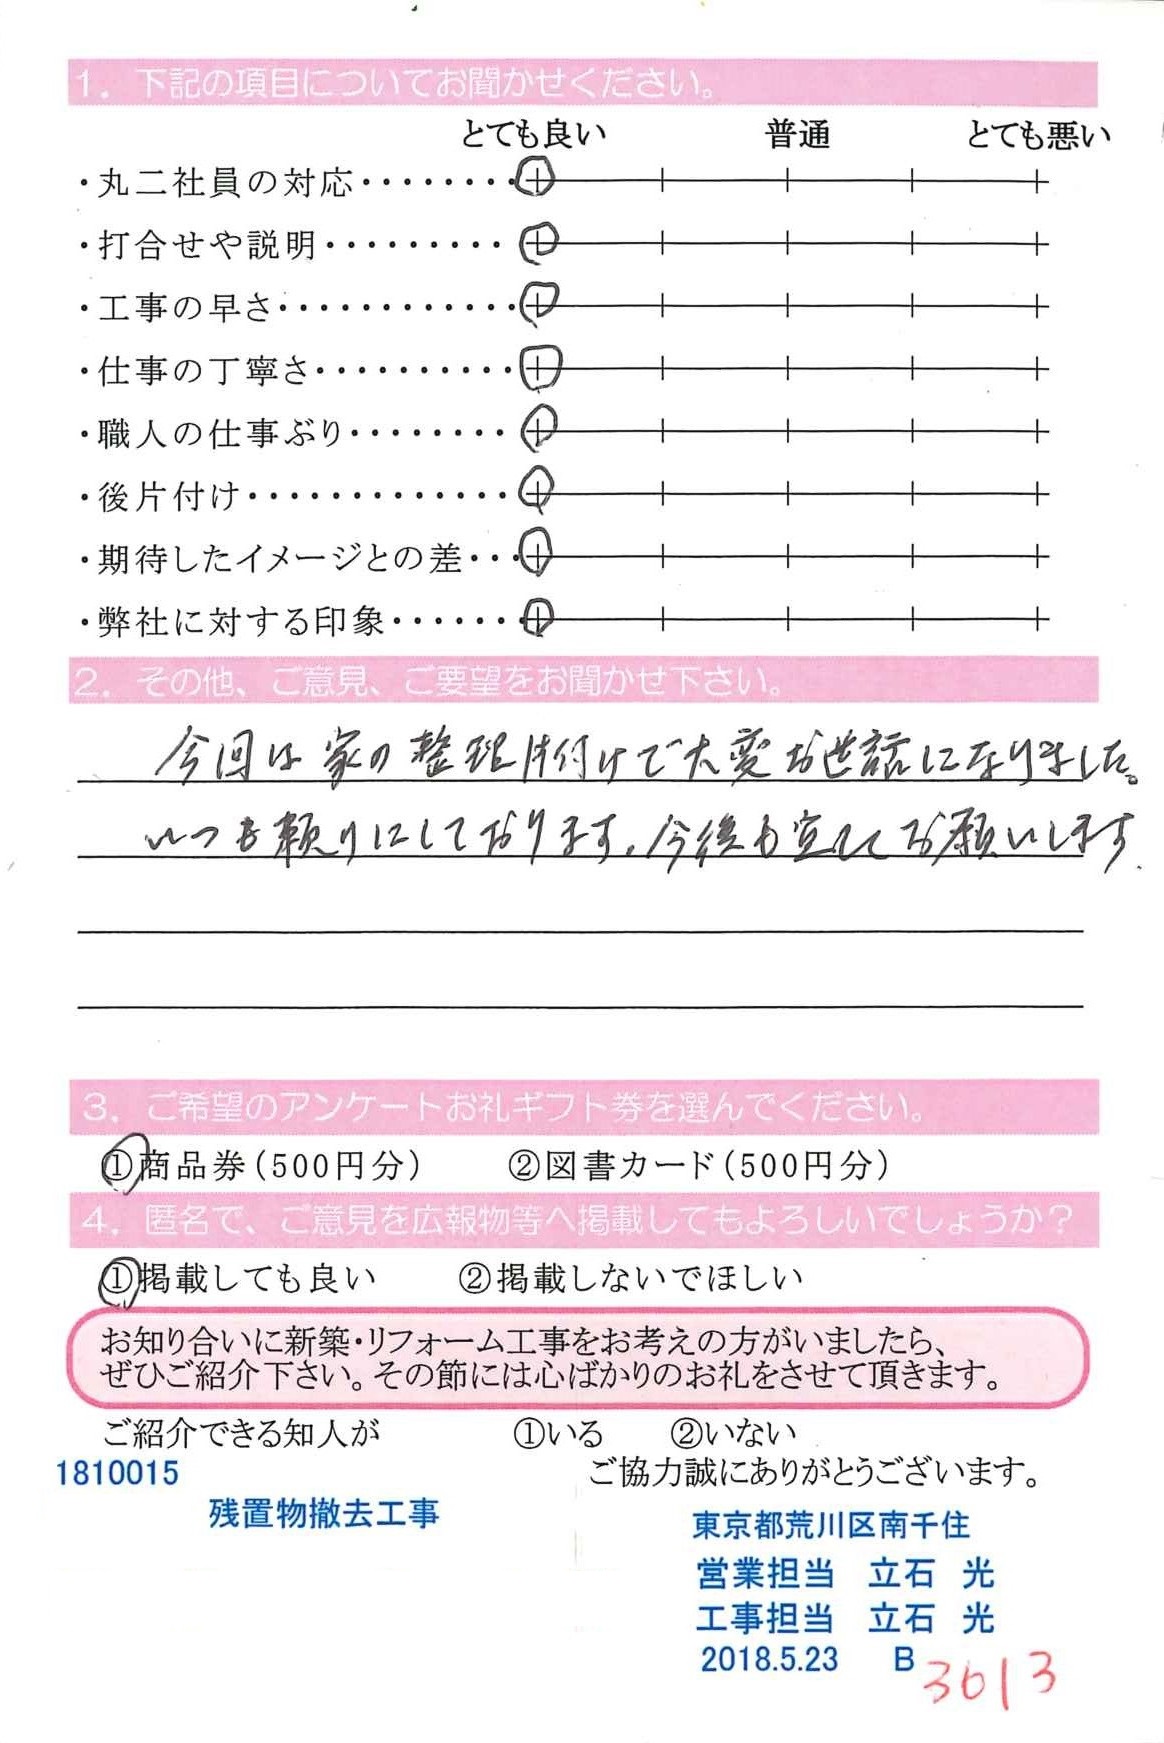 1. 下記の項目についてお聞かせください。
とても良い 普通 とても悪い
・丸二社員の対応・・・・・・・・
・打合せや説明・・・・・・・・・・
・工事の早さ・・・・・・・・・・・・・
・仕事の丁寧さ・・・・・・・・・・・
・職人の仕事ぶり・・・・・・・・
・後片付け・・・・・・・・・・・・・・
・期待したイメージとの差・・・
・弊社に対する印象・・・・・・・
2. その他、ご意見、ご要望をお聞かせ下さい。
今回は家の整理片付けで大変お世話になりました。
いつも頼りにしております。今後も宜しくお願いします.
3. ご希望のアンケートお礼ギフト券を選んでください。
①商品券(500円分) ②図書カード(500円分)
4. 匿名で、ご意見を広報物等へ掲載してもよろしいでしょうか?
①掲載しても良い ②掲載しないでほしい
お知り合いに新築・リフォーム工事をお考えの方がいましたら、
ぜひご紹介下さい。その節には心ばかりのお礼をさせて頂きます。
ご紹介できる知人が ①いる ②いない
1810015 ご協力誠にありがとうございます。
残置物撤去工事 東京都荒川区南千住
営業担当 立石 光
工事担当 立石 光
2018.5.23 B 3613